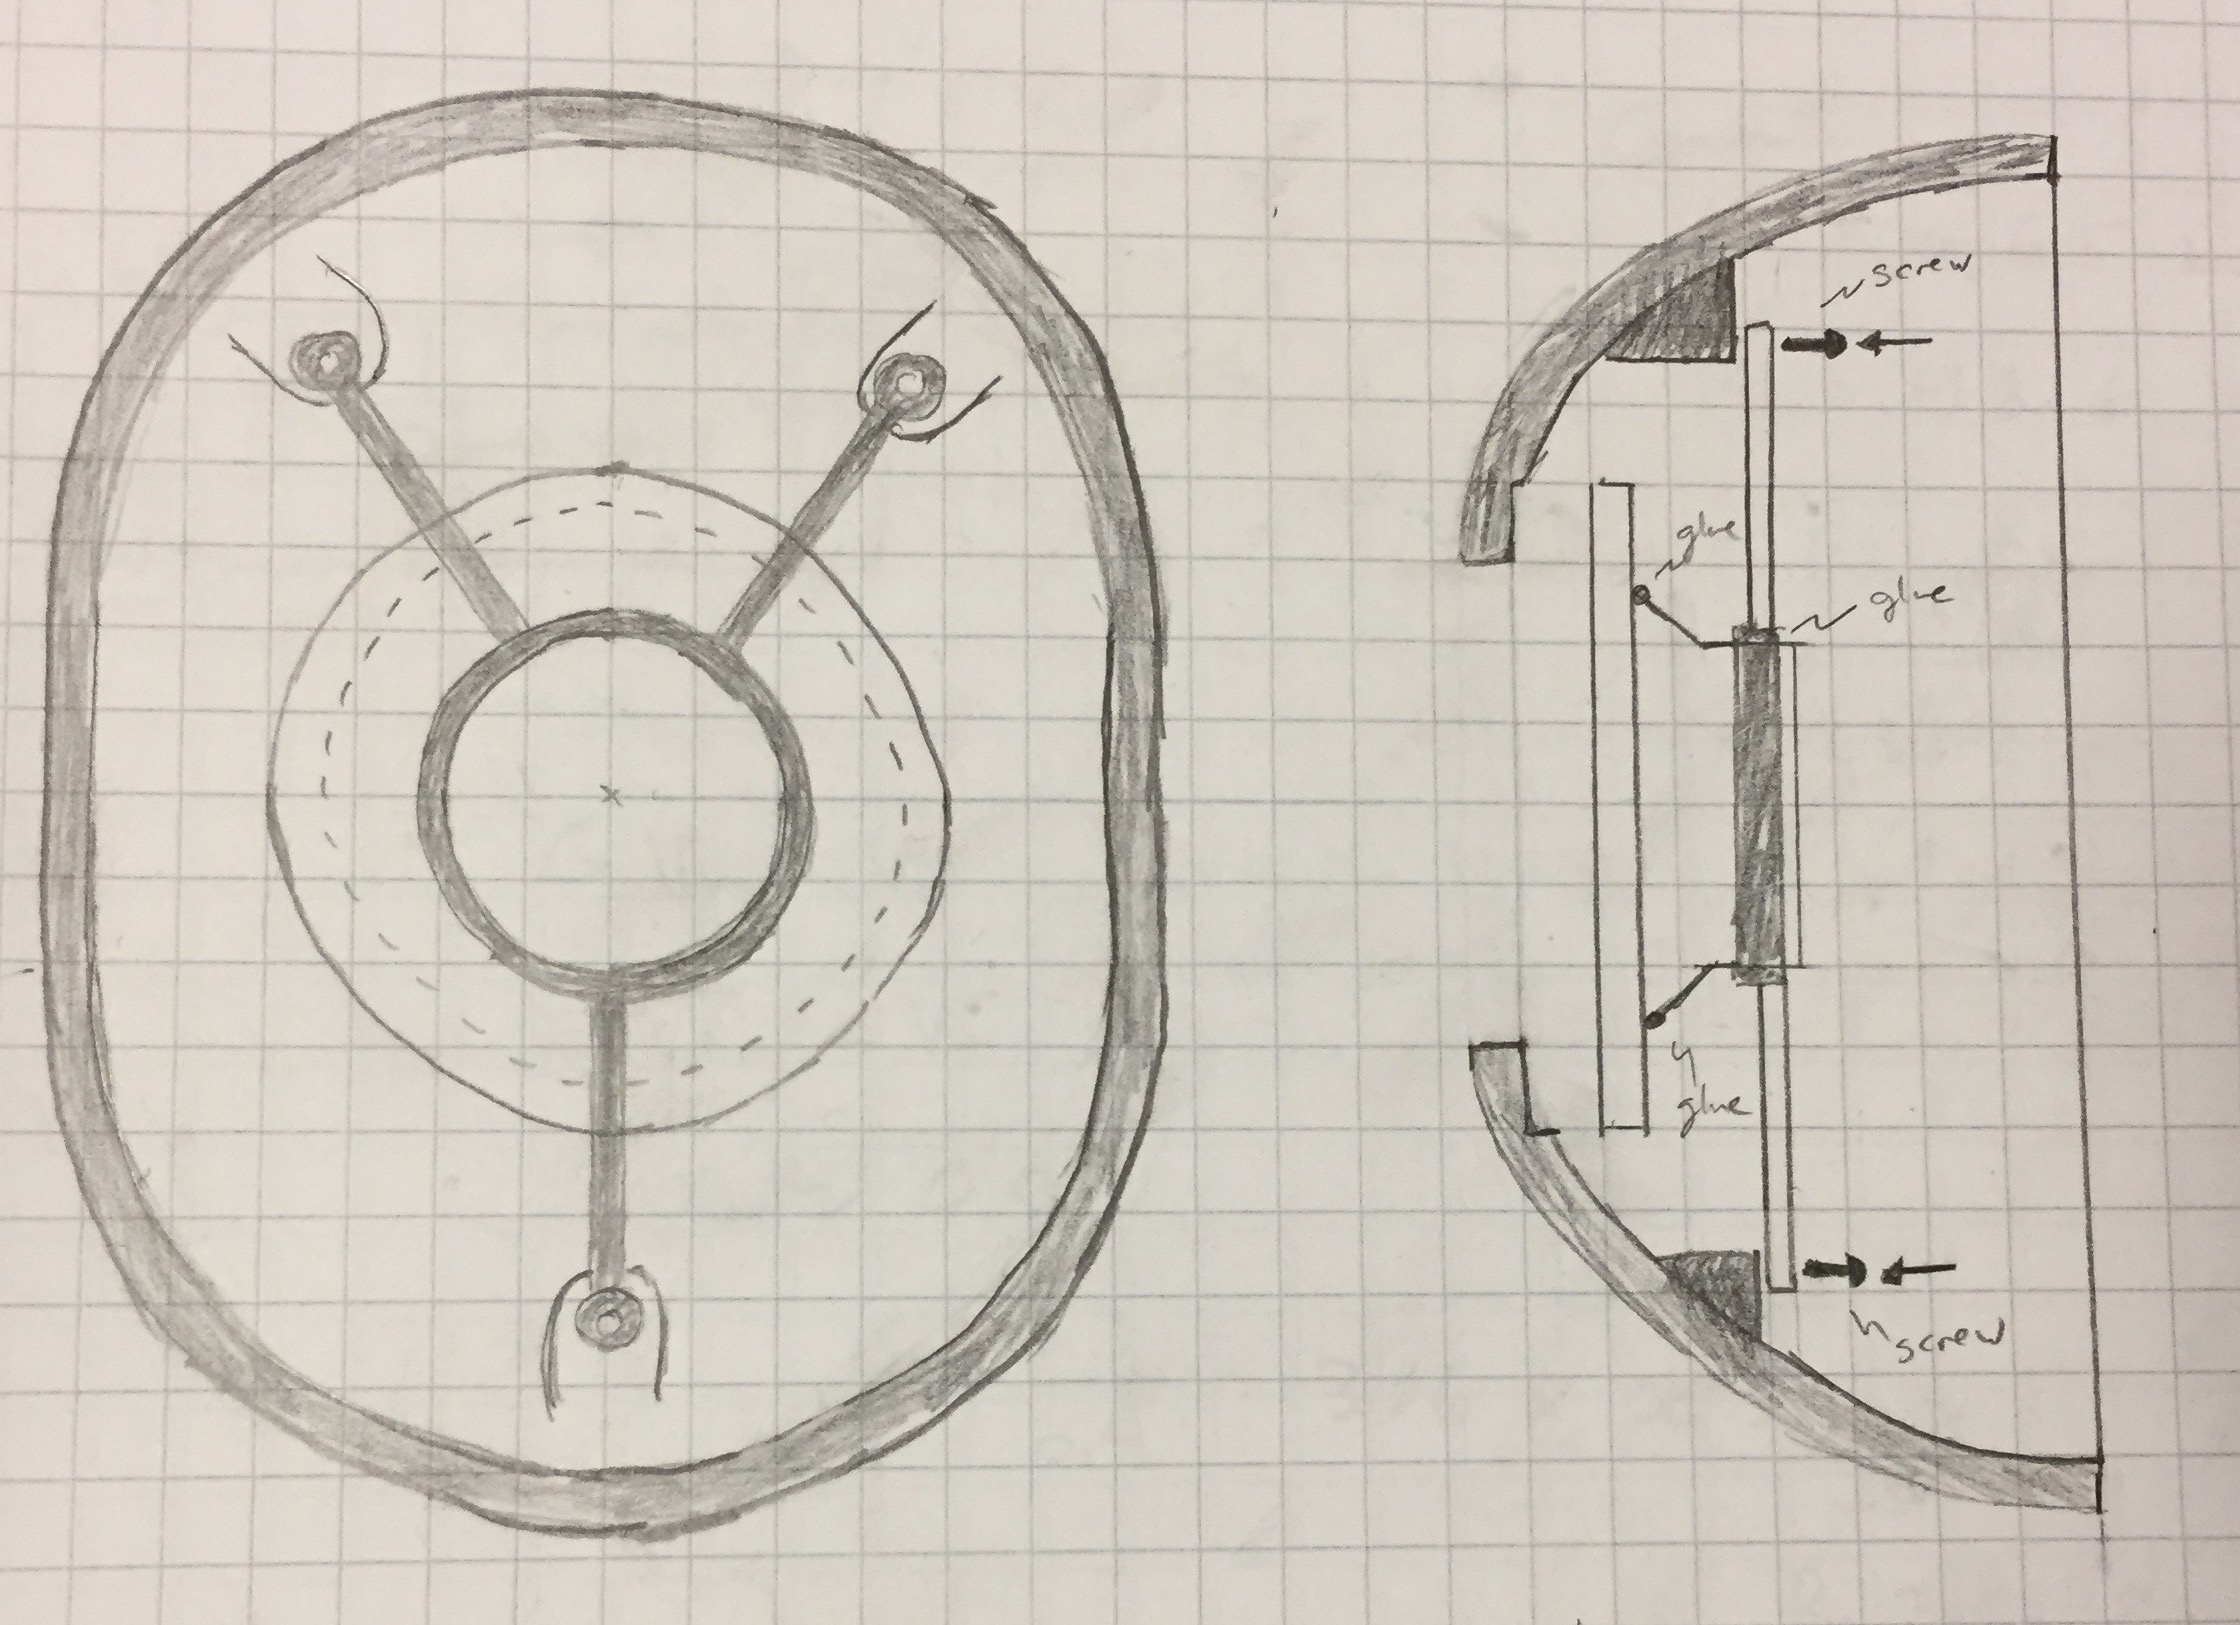 screw
glue
glue
glue
screw